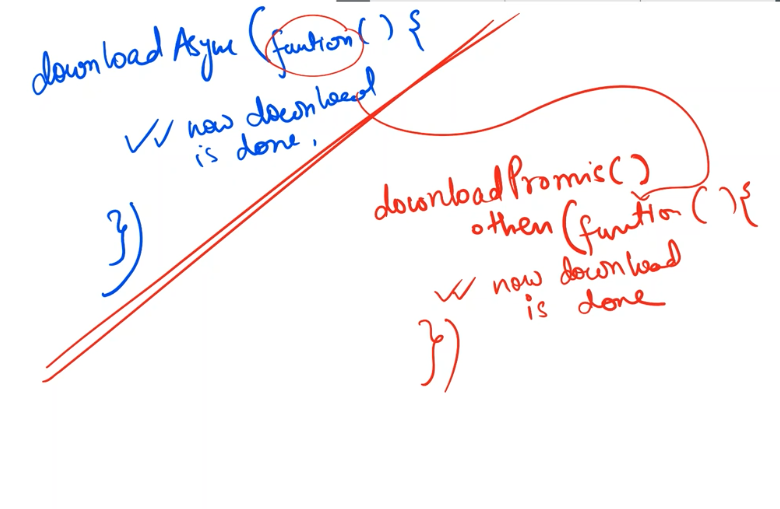 downloadAsync (funtion() {
✓✓ now download
is done.
})
downloadPromis()
.then (funtion () {
✓✓ now download
is done
})